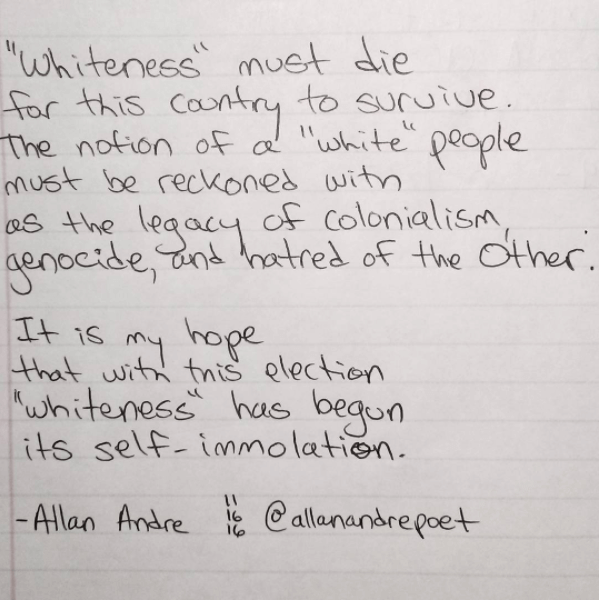 "Whiteness" must die
for this country to survive.
The notion of a "white" people
must be reckoned with
as the legacy of colonialism,
genocide, and hatred of the Other.
It is my hope
that with this election
"whiteness" has begun
its self-immolation.
-Allan Andre 11 16 16 @allanandrepoet